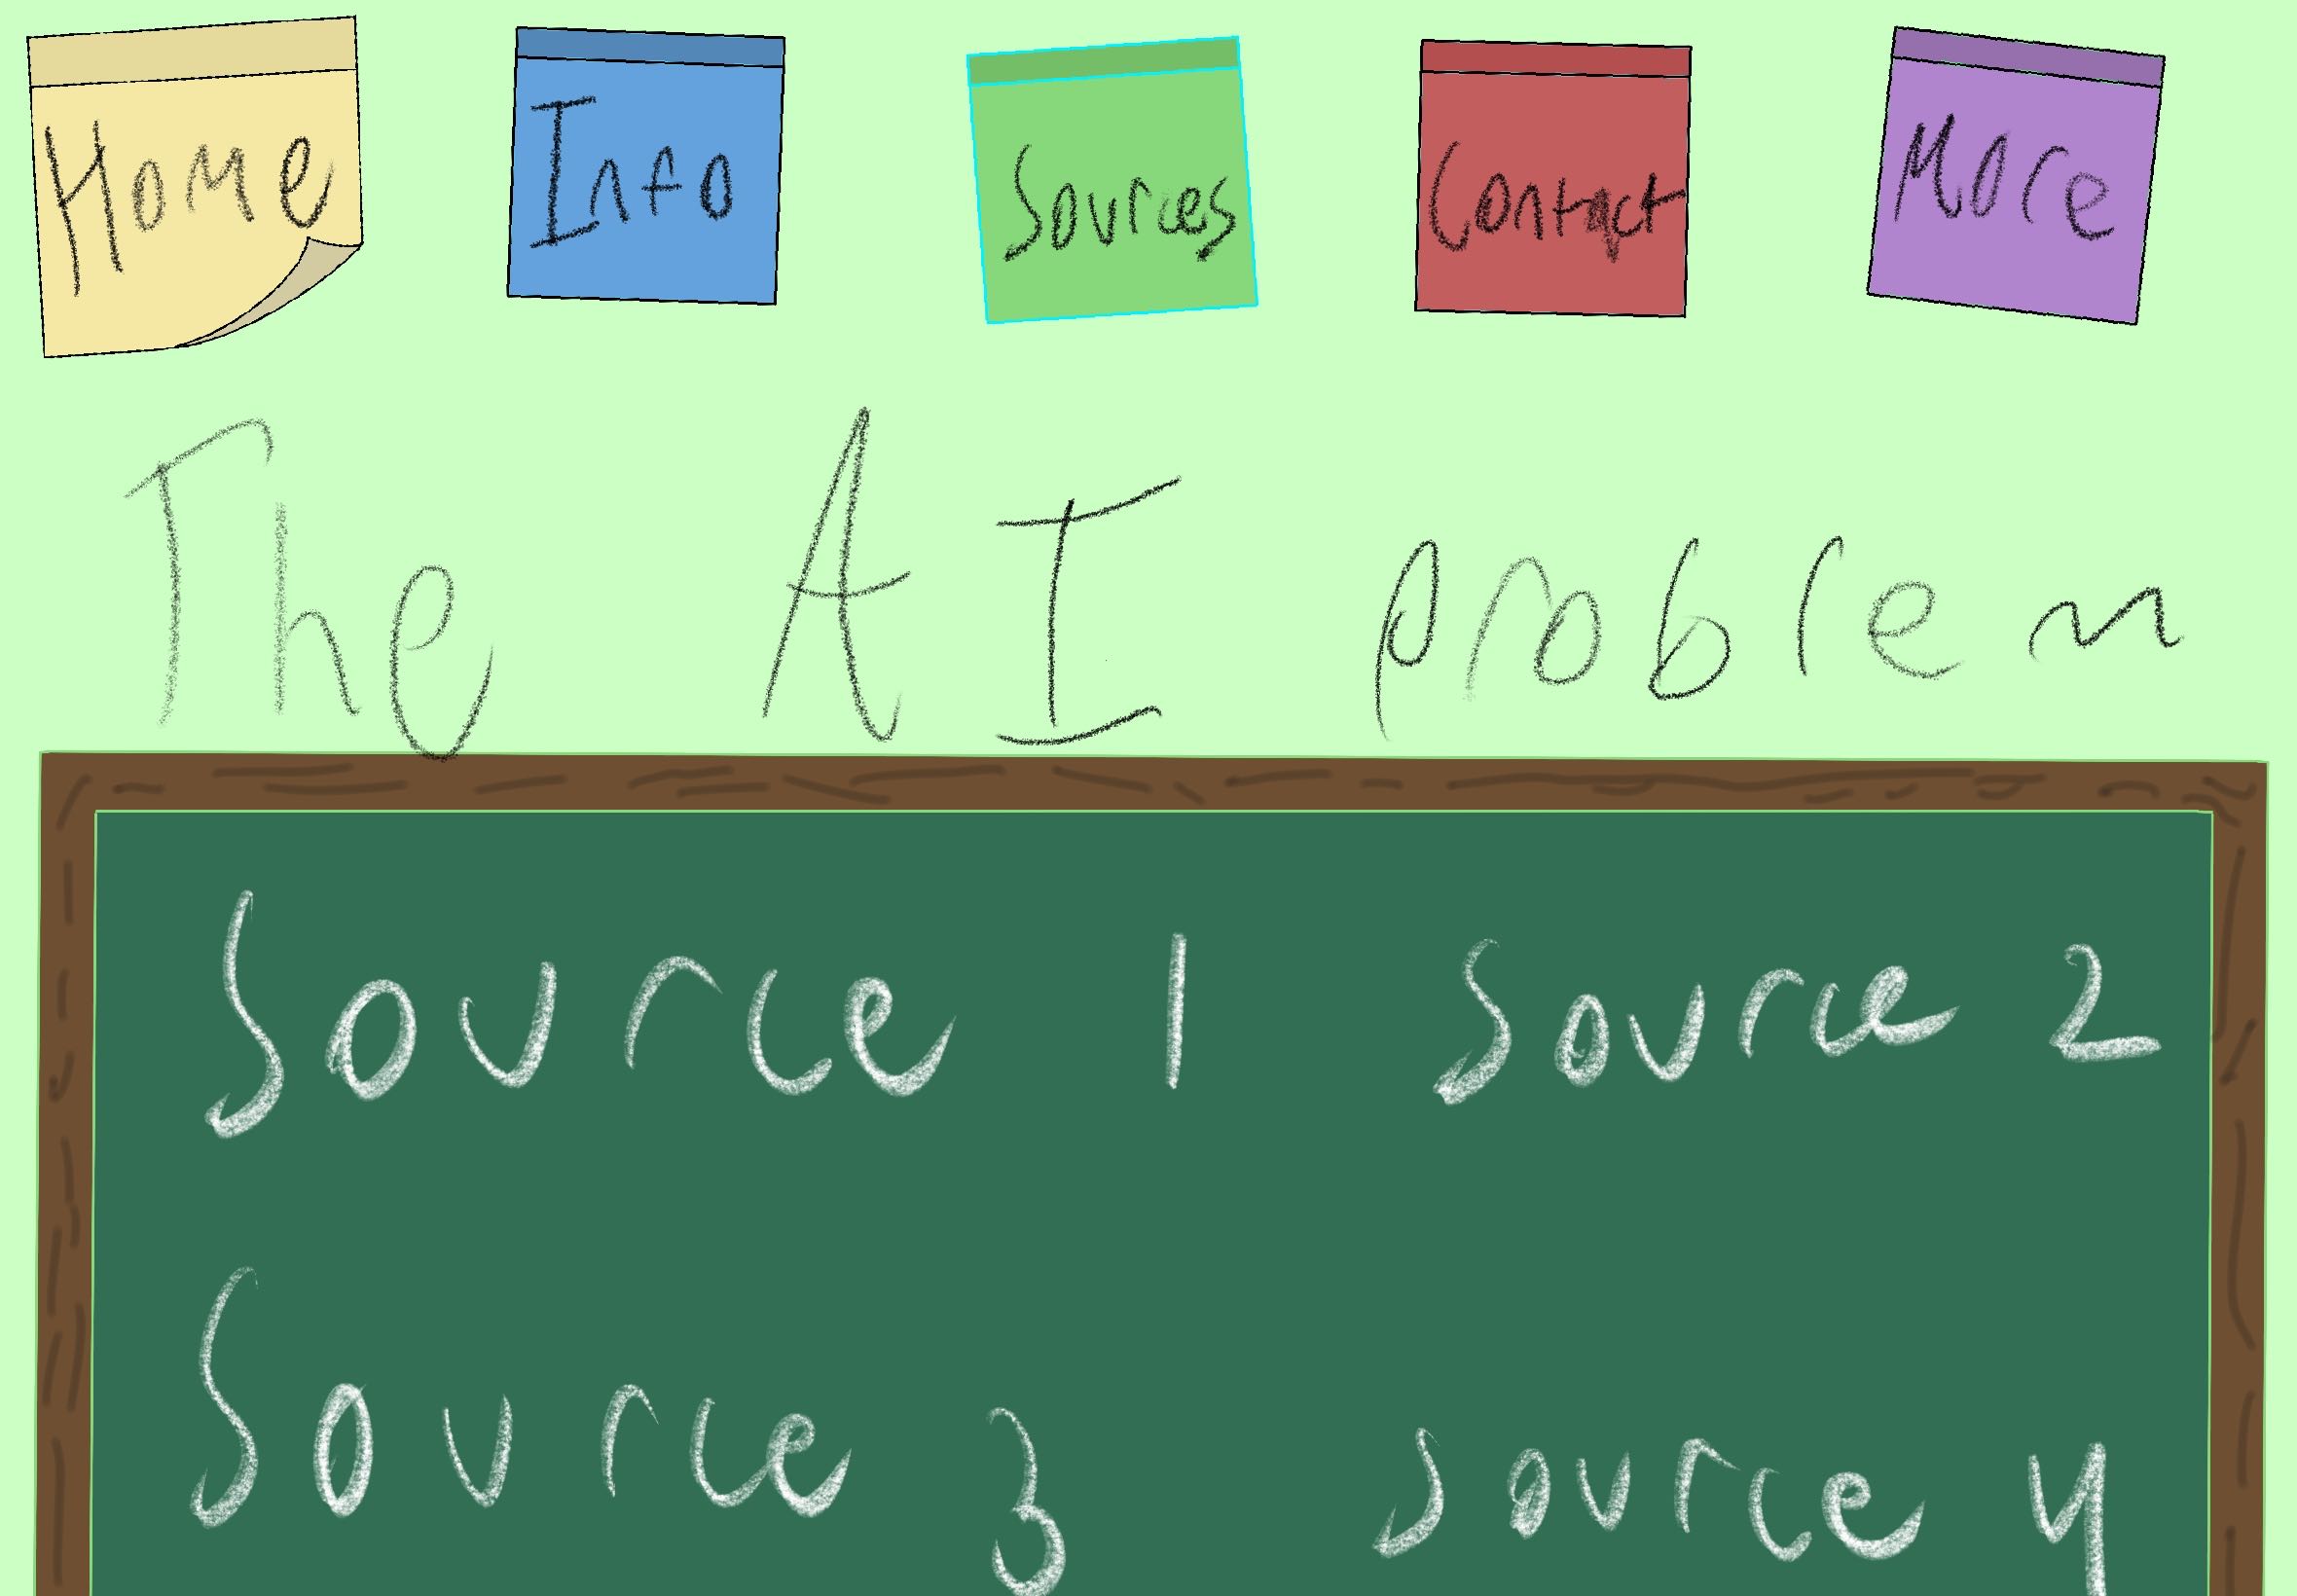 Home Info Sources Contact More
The AI problem
Source 1 Source 2
Source 3 Source 4